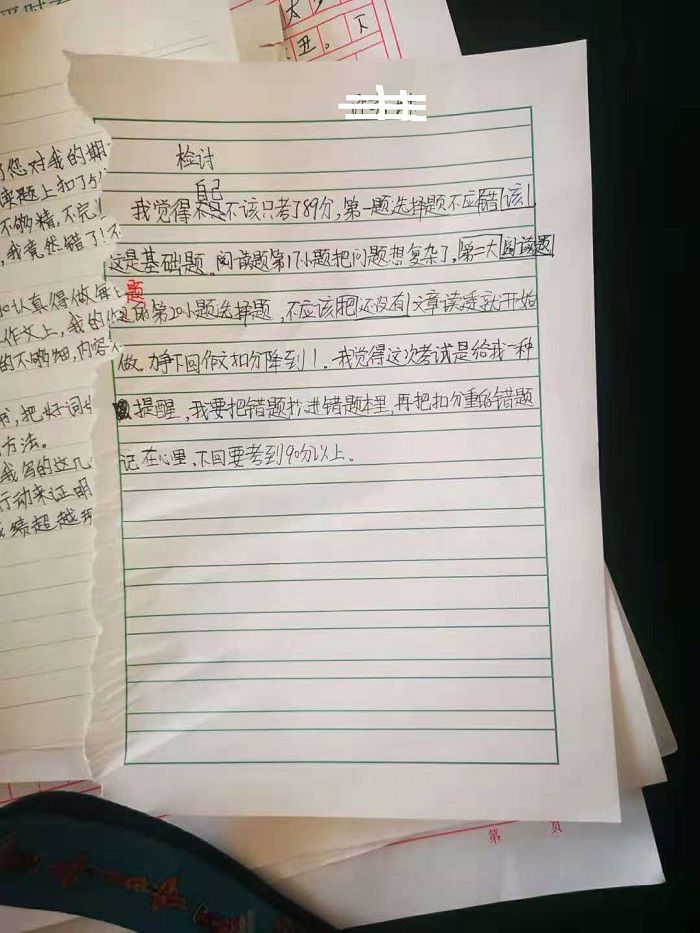 丑。下
了您对我的期
读题上扣了5
不够精,不完
,我竟然错了!不
认真得做每
作文上,我的
的不够细,内容
书,把好词
方法。
我写的这几
行动来证明
绩超越
检讨
自己
我觉得不是不该只考了89分,第一题选择题不应错该
这是基础题。阅读题第17小题把问题想复杂了,第二大阅读题
题
的第20小题选择题,不应该把还没有文章读透就开始
做。力争下回作文扣分降到1。我觉得这次考试是给我一种
提醒,我要把错题抄进错题本里,再把扣分重的错题
记在心里,下回要考到90分以上。
第 页